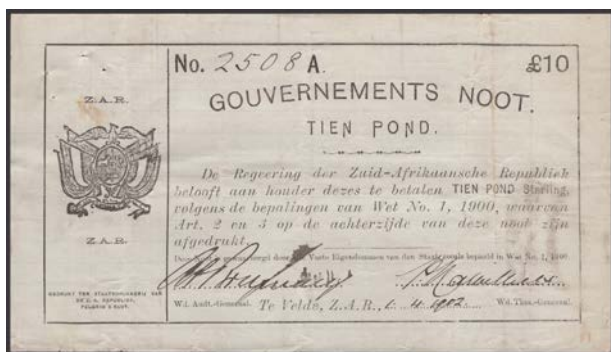 No. 2508 A. £10
GOUVERNEMENTS NOOT.
TIEN POND.
Z.A.R.
De Regeering der Zuid-Afrikaansche Republiek
belooft aan houder dezes te betalen TIEN POND Sterling,
volgens de bepalingen van Wet No. 1, 1900, waarvan
Art. 2 en 3 op de achterzijde van deze noot zijn
afgedrukt.
Z.A.R.
door Vaste Eigendommen van den Staat bepaald in Wet No. 1, 1900.
GEDRUKT TER STAATSDRUKKERIJ VAN
DE Z. A. REPUBLIEK,
PELGRIM'S RUST.
Wd. Audt.-Generaal. Te Velde, Z.A.R., 1. 4. 1902 Wd. Thes.-Generaal.